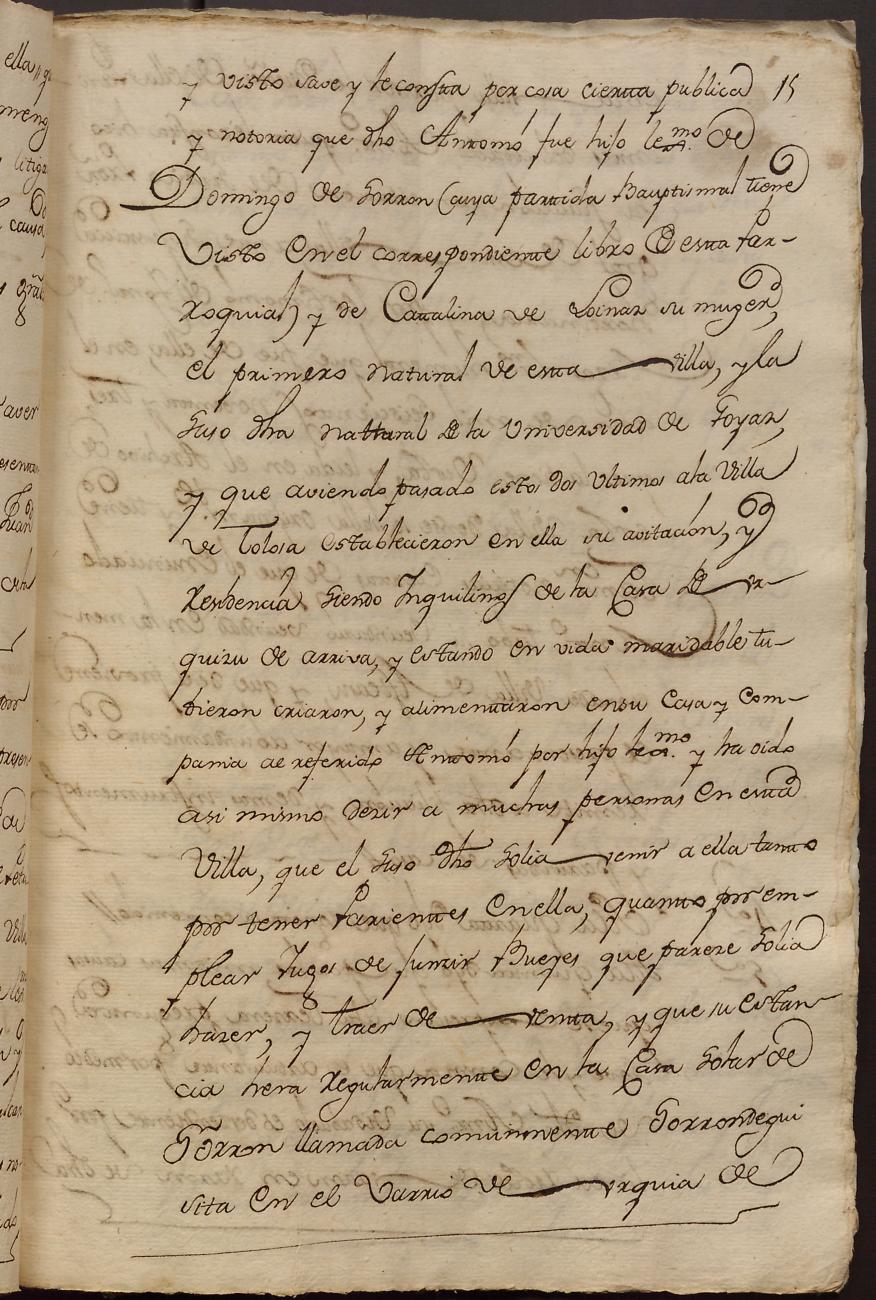 y visto save y le consta por cosa cierta publica 15
y notoria que dho Antonio fue hijo legmo. de
Domingo de Sorron (cuya partida Bauptismal tiene
Visto en el correspondiente libro de esta Par-
roquial) y de Catalina de Loinaz su muger,
el primero natural de esta villa, y la
suso dha natural de la Universidad de Goyaz,
y que aviendo pasado estos dos ultimos ala Villa
de Tolosa establecieron en ella su avitacion, y
Residencia siendo Inquilinos de la Casa de Ur-
quizu de arriva, y estando en vida maridable tu-
bieron criaron, y alimentaron en su Casa y Com-
pania al referido Antonio por hijo legmo. y ha oido
asi mismo dezir a muchas personas en esta
Villa, que el suso dho solia venir a ella tanto
por tener Parientes en ella, quanto por em-
plear Jugos de junzir Bueyes que pareze solia
hazer, y traer de venta, y que su estan-
cia hera Regularmente en la Casa Solar de
Sorron llamada comunmente Sorrondegui
sita en el Varrio de Urquia de